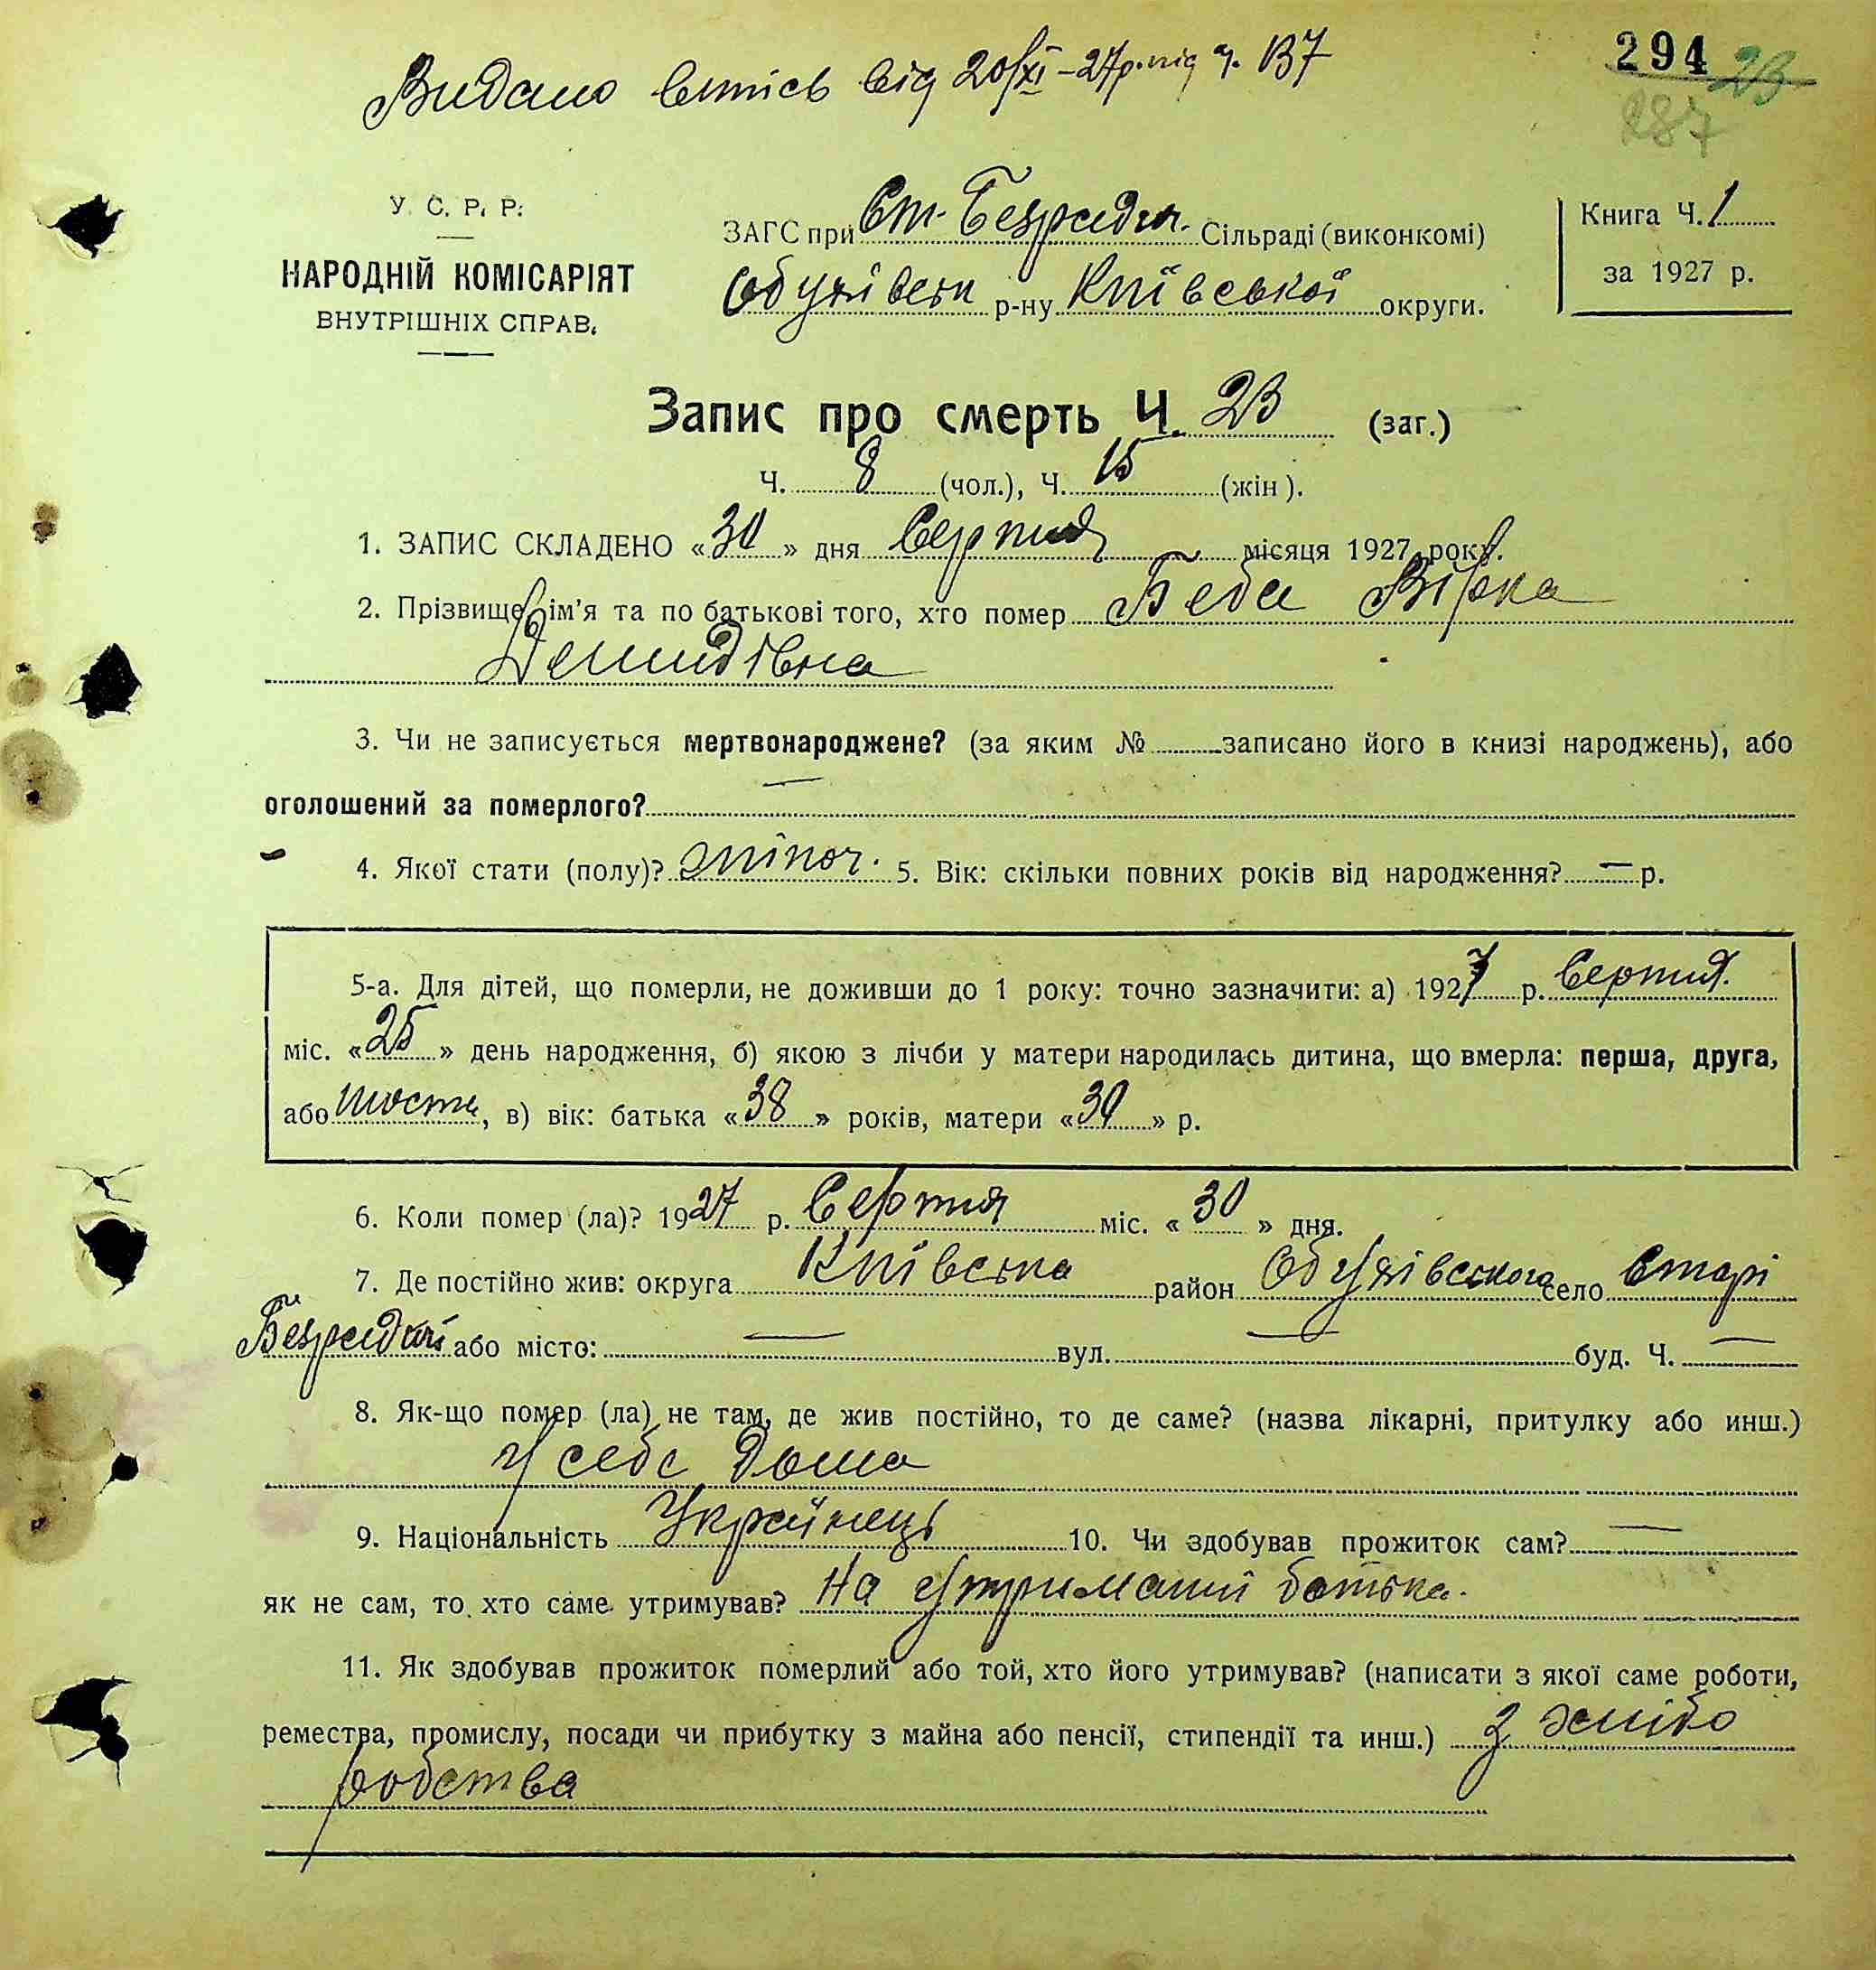 Видано витпісь від 20/XI-27р. під ч. 137
294 23
287
У. С. Р. Р.
НАРОДНІЙ КОМІСАРІЯТ
ВНУТРІШНІХ СПРАВ.
ЗАГС при Ст-Безрадич. Сільраді (виконкомі)
Обухівськ р-ну Київської округи.
Книга Ч. 1
за 1927 р.
Запис про смерть Ч. 23 (заг.)
Ч. 8 (чол.), Ч. 15 (жін).
1. ЗАПИС СКЛАДЕНО «30» дня Серпня місяця 1927 року.
2. Прізвище, ім'я та по батькові того, хто помер Беба Вірка
Демидівна
3. Чи не записується мертвонароджене? (за яким № записано його в книзі народжень), або
оголошений за померлого?
4. Якої стати (полу)? жіноч. 5. Вік: скільки повних років від народження? — р.
5-а. Для дітей, що померли, не доживши до 1 року: точно зазначити: а) 1927 р. Серпня
міс. «25» день народження, б) якою з лічби у матери народилась дитина, що вмерла: перша, друга,
або шоста, в) вік: батька «38» років, матери «39» р.
6. Коли помер (ла)? 1927 р. Серпня міс. «30» дня.
7. Де постійно жив: округа Київська район Обухівського село Старі
Безрадичі або місто: — вул. — буд. Ч. —
8. Як-що помер (ла) не там, де жив постійно, то де саме? (назва лікарні, притулку або инш.)
У себе дома
9. Національність Українець 10. Чи здобував прожиток сам? —
як не сам, то хто саме утримував? На утриманні батька.
11. Як здобував прожиток померлий або той, хто його утримував? (написати з якої саме роботи,
ремества, промислу, посади чи прибутку з майна або пенсії, стипендії та инш.) З хлібо
робства